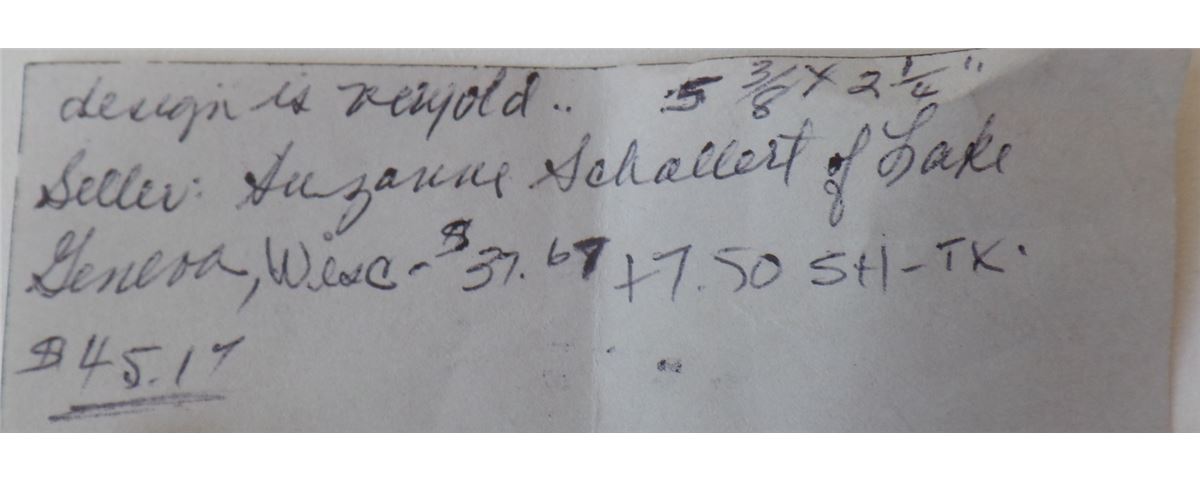 design is very old .. 5 3/8 x 2 1/4"
Seller: Suzanne Schallert of Lake
Geneva, Wisc - $37.67 +7.50 S+I - TK.
$45.17